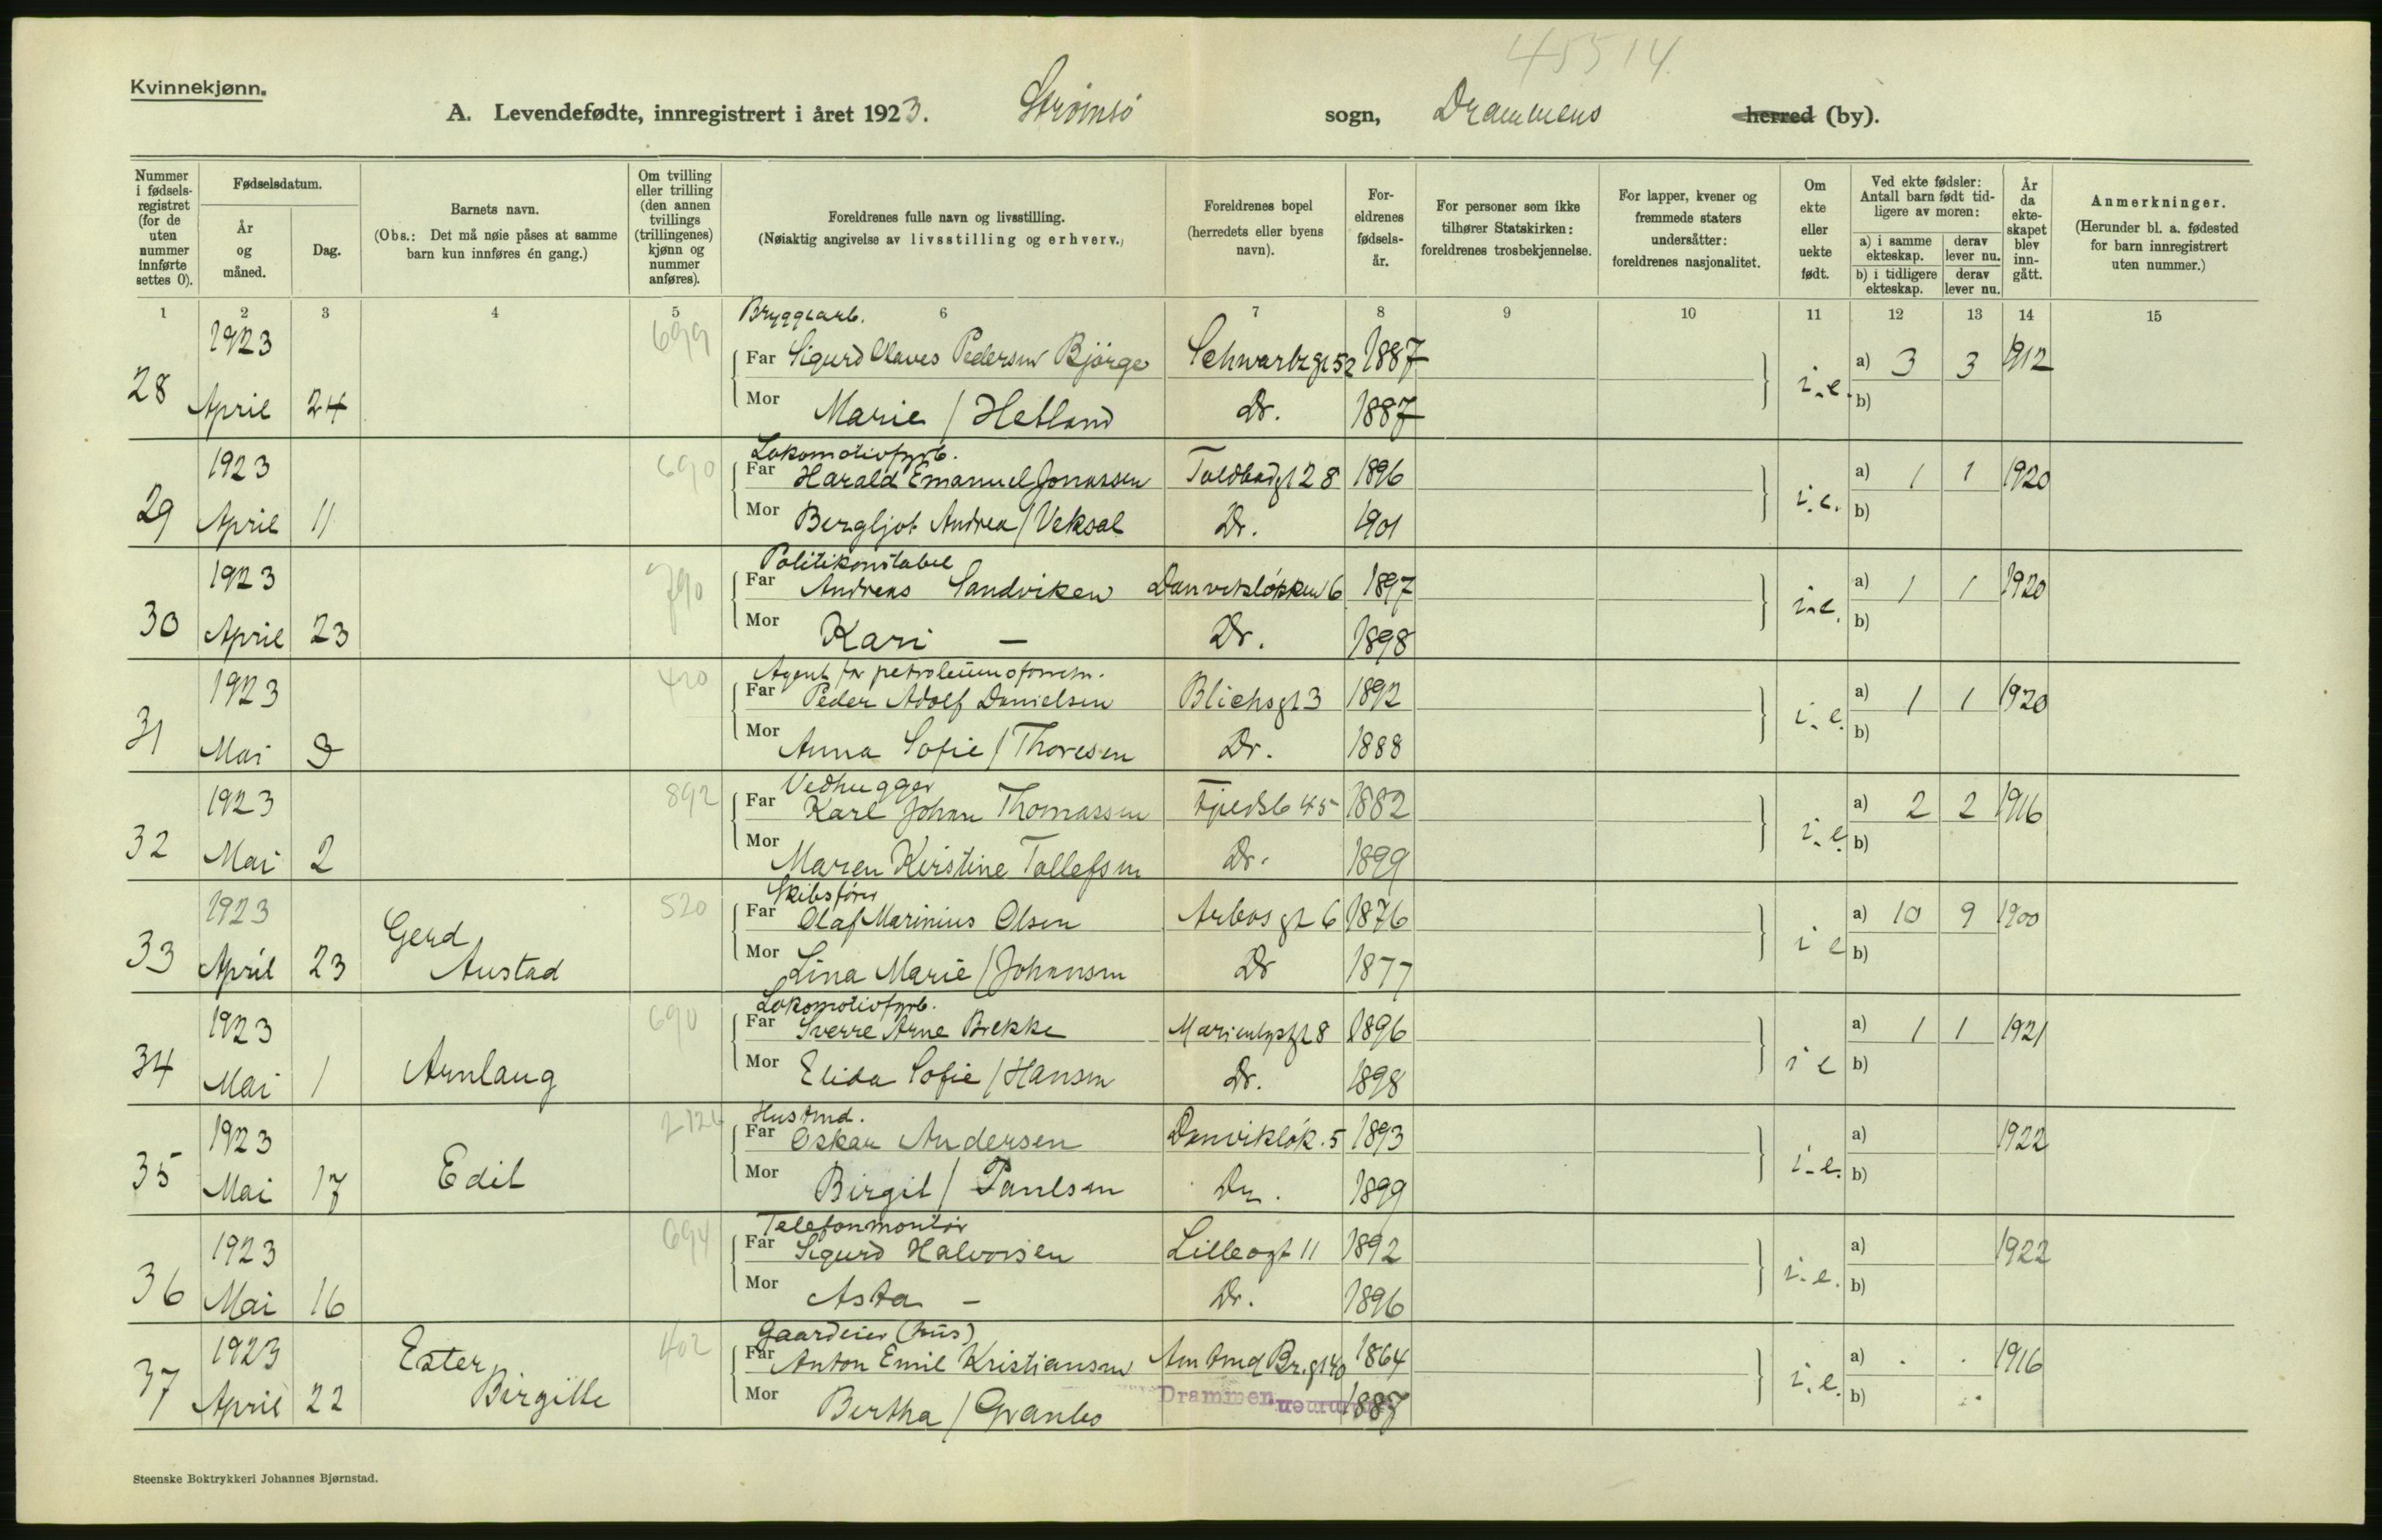 45514
Kvinnekjønn.
A. Levendefødte, innregistrert i året 1923. Strømsö sogn, Drammens herred (by).
Nummer i fødselsregistret (for de uten nummer innførte settes 0).
Fødselsdatum.
År og måned.
Dag.
Barnets navn.
(Obs.: Det må nøie påses at samme barn kun innføres én gang.)
Om tvilling eller trilling (den annen tvillings (trillingenes) kjønn og nummer anføres).
Foreldrenes fulle navn og livsstilling.
(Nøiaktig angivelse av livsstilling og erhverv.)
Foreldrenes bopel (herredets eller byens navn).
Foreldrenes fødselsår.
For personer som ikke tilhører Statskirken: foreldrenes trosbekjennelse.
For lapper, kvener og fremmede staters undersåtter: foreldrenes nasjonalitet.
Om ekte eller uekte født.
Ved ekte fødsler: Antall barn født tidligere av moren:
a) i samme ekteskap. derav lever nu.
b) i tidligere ekteskap. derav lever nu.
År da ekteskapet blev inngått.
Anmerkninger.
(Herunder bl. a. fødested for barn innregistrert uten nummer.)
1 2 3 4 5 6 7 8 9 10 11 12 13 14 15
Bryggearb.
1923 699 Far Sigurd Olaves Pedersen Björge Schwartzgt 52 1887 a) 3 3 1912
28 April 24 Mor Marie / Hetland Dr. 1887 i.e. b)
Lokomotivfyrb.
1923 690 Far Harald Emanuel Jonassen Toldbodgt 28 1896 a) 1 1 1920
29 April 11 Mor Bergljot Andrea / Veksal Dr. 1901 i.e. b)
Politikonstabel
1923 790 Far Andreas Sandviken Danvikløkken 6 1897 a) 1 1 1920
30 April 23 Mor Kari — Dr. 1898 i.e. b)
Agent for petroleumsforretn.
1923 420 Far Peder Adolf Danielsen Blichsgt 3 1892 a) 1 1 1920
31 Mai 9 Mor Anna Sofie / Thoresen Dr. 1888 i.e. b)
Vedhugger
1923 892 Far Karl Johan Thomassen Fjeldsb 45 1882 a) 2 2 1916
32 Mai 2 Mor Maren Kirstine Tollefsen Dr. 1899 i.e. b)
Skibsfører
1923 520 Far Olaf Marinius Olsen Arbosgt 6 1876 a) 10 9 1900
33 April 23 Gerd Austad Mor Lina Marie / Johansen Dr 1877 i e b)
Lokomotivfyrb.
1923 690 Far Sverre Arne Brekke Marienlystgt 8 1896 a) 1 1 1921
34 Mai 1 Arnlaug Mor Elida Sofie / Hansen Dr. 1898 i e b)
Hustmd.
1923 Far Oskar Andersen Danvikløk. 5 1893 a) 1922
35 Mai 17 Edit Mor Birgit / Paulsen Dr. 1899 i.e. b)
Telefonmontør
1923 694 Far Sigurd Halvorsen Lilleogt 11 1892 a) 1922
36 Mai 16 Mor Asta — Dr. 1896 i.e. b)
Gaardeier (hus)
1923 402 Far Anton Emil Kristiansen Amtmd Br.gt 40 1864 a) . . 1916
37 April 22 Ester Birgitte Mor Bertha / Granbo Drammen 1887 i.e. b)
Steenske Boktrykkeri Johannes Bjørnstad.